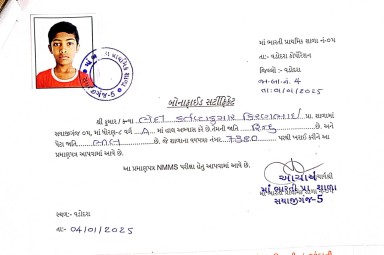 માં ભારતી પ્રાથમિક શાળા નં-૦૫
તા:- વડોદરા કોર્પોરેશન
જિલ્લો :- વડોદરા
જ.બા.નં. 4
તા.01/01/2025
બોનાફાઈડ સર્ટીફિકેટ
શ્રી કુમાર / કન્યા કિરણભાઈ પ્રા. શાળામાં
સયાજીગંજ ૦૫, માં ધોરણ-૮ વર્ગ A માં હાલ અભ્યાસ કરે છે તેમની જાતિ હિન્દુ છે. અને
પેટા જાતિ છે. જે શાળાના વયપત્રક નંબર 7380 પરથી ખરાઈ કરીને આ
પ્રમાણપત્ર આપવામાં આવે છે.
આ પ્રમાણપત્ર NMMS પરીક્ષા હેતુ આપવામાં આવે છે.
આચાર્ય
માં ભારતી પ્રા. શાળા
સયાજીગંજ-5
સ્થળ:- વડોદરા
તા:- 04/01/2025